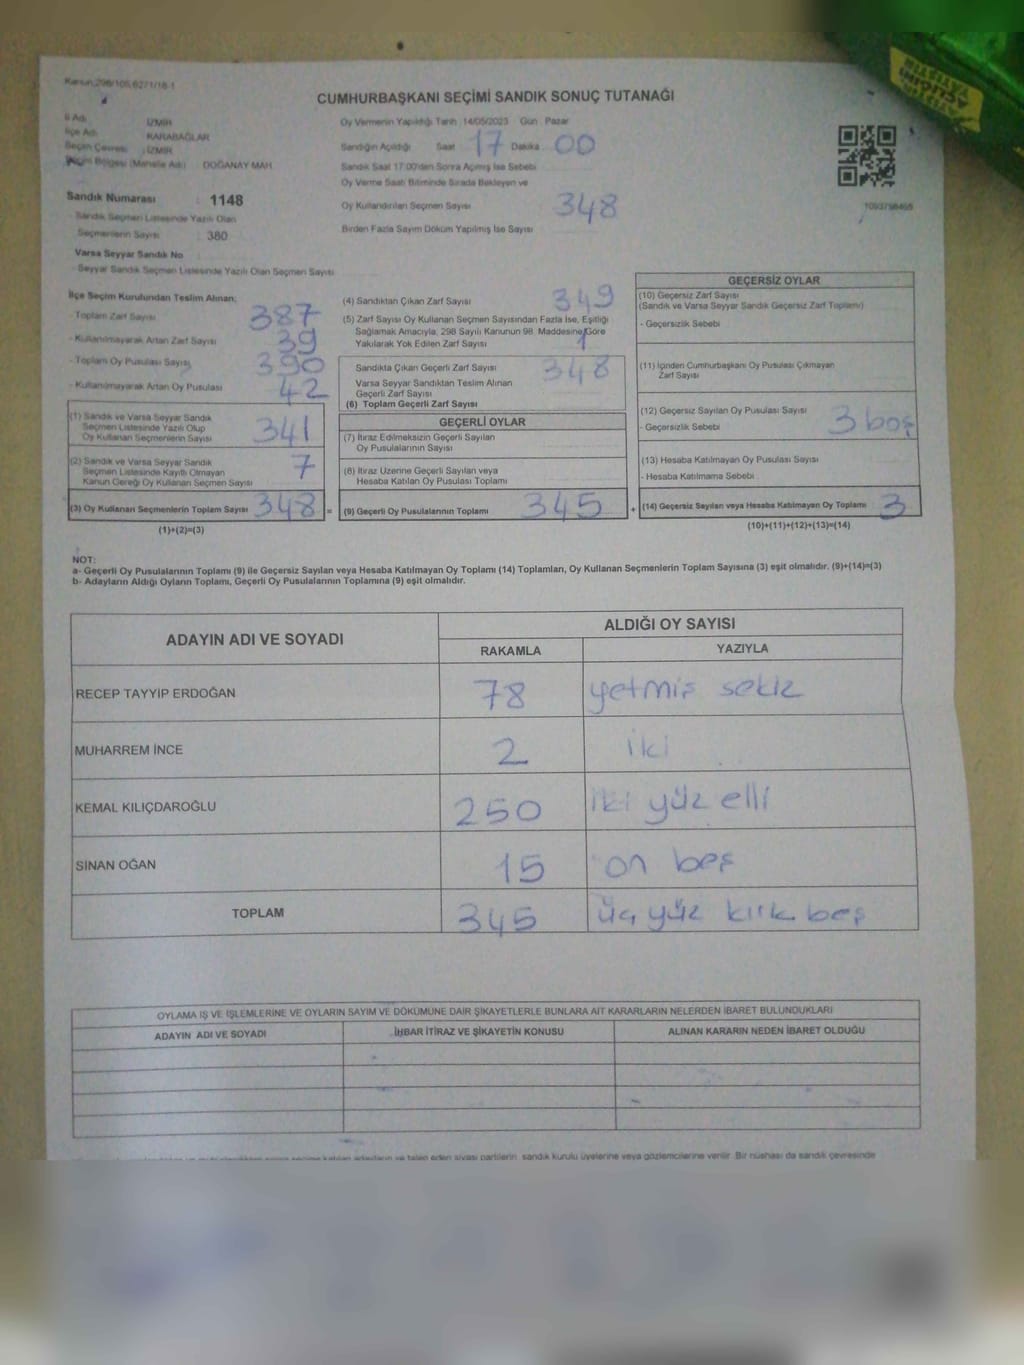 Kanun:298/105,6271/18-1
CUMHURBAŞKANI SEÇİMİ SANDIK SONUÇ TUTANAĞI
İl Adı : İZMİR
İlçe Adı : KARABAĞLAR
Seçim Çevresi : İZMİR
Seçim Bölgesi (Mahalle Adı) : DOĞANAY MAH.
Oy Vermenin Yapıldığı Tarih : 14/05/2023 Gün : Pazar
Sandığın Açıldığı Saat 17 Dakika 00
Sandık Saat 17.00'den Sonra Açılmış İse Sebebi
Oy Verme Saati Bitiminde Sırada Bekleyen ve
Oy Kullandırılan Seçmen Sayısı 348
Birden Fazla Sayım Döküm Yapılmış İse Sayısı
Sandık Numarası : 1148
- Sandık Seçmen Listesinde Yazılı Olan
Seçmenlerin Sayısı : 380
Varsa Seyyar Sandık No
- Seyyar Sandık Seçmen Listesinde Yazılı Olan Seçmen Sayısı
İlçe Seçim Kurulundan Teslim Alınan;
- Toplam Zarf Sayısı 387
- Kullanılmayarak Artan Zarf Sayısı 39
- Toplam Oy Pusulası Sayısı 390
- Kullanılmayarak Artan Oy Pusulası 42
(1) Sandık ve Varsa Seyyar Sandık
Seçmen Listesinde Yazılı Olup
Oy Kullanan Seçmenlerin Sayısı 341
(2) Sandık ve Varsa Seyyar Sandık
Seçmen Listesinde Kayıtlı Olmayan
Kanun Gereği Oy Kullanan Seçmen Sayısı 7
(3) Oy Kullanan Seçmenlerin Toplam Sayısı 348 =
(1)+(2)=(3)
(4) Sandıktan Çıkan Zarf Sayısı 349
(5) Zarf Sayısı Oy Kullanan Seçmen Sayısından Fazla İse, Eşitliği
Sağlamak Amacıyla, 298 Sayılı Kanunun 98. Maddesine Göre
Yakılarak Yok Edilen Zarf Sayısı 1
Sandıkta Çıkan Geçerli Zarf Sayısı 348
Varsa Seyyar Sandıktan Teslim Alınan
Geçerli Zarf Sayısı
(6) Toplam Geçerli Zarf Sayısı
GEÇERLİ OYLAR
(7) İtiraz Edilmeksizin Geçerli Sayılan
Oy Pusulalarının Sayısı
(8) İtiraz Üzerine Geçerli Sayılan veya
Hesaba Katılan Oy Pusulası Toplamı
(9) Geçerli Oy Pusulalarının Toplamı 345 +
GEÇERSİZ OYLAR
(10) Geçersiz Zarf Sayısı
(Sandık ve Varsa Seyyar Sandık Geçersiz Zarf Toplamı)
- Geçersizlik Sebebi
(11) İçinden Cumhurbaşkanı Oy Pusulası Çıkmayan
Zarf Sayısı
(12) Geçersiz Sayılan Oy Pusulası Sayısı
- Geçersizlik Sebebi 3 boş
(13) Hesaba Katılmayan Oy Pusulası Sayısı
- Hesaba Katılmama Sebebi
(14) Geçersiz Sayılan veya Hesaba Katılmayan Oy Toplamı 3
(10)+(11)+(12)+(13)=(14)
NOT:
a- Geçerli Oy Pusulalarının Toplamı (9) ile Geçersiz Sayılan veya Hesaba Katılmayan Oy Toplamı (14) Toplamları, Oy Kullanan Seçmenlerin Toplam Sayısına (3) eşit olmalıdır. (9)+(14)=(3)
b- Adayların Aldığı Oyların Toplamı, Geçerli Oy Pusulalarının Toplamına (9) eşit olmalıdır.
ADAYIN ADI VE SOYADI
ALDIĞI OY SAYISI
RAKAMLA YAZIYLA
RECEP TAYYİP ERDOĞAN 78 yetmiş sekiz
MUHARREM İNCE 2 iki
KEMAL KILIÇDAROĞLU 250 iki yüz elli
SİNAN OĞAN 15 on beş
TOPLAM 345 üç yüz kırk beş
OYLAMA İŞ VE İŞLEMLERİNE VE OYLARIN SAYIM VE DÖKÜMÜNE DAİR ŞİKAYETLERLE BUNLARA AİT KARARLARIN NELERDEN İBARET BULUNDUKLARI
ADAYIN ADI VE SOYADI İHBAR İTİRAZ VE ŞİKAYETİN KONUSU ALINAN KARARIN NEDEN İBARET OLDUĞU
adayların ve talep eden siyasi partilerin, sandık kurulu üyelerine veya gözlemcilerine verilir. Bir nüshası da sandık çevresinde